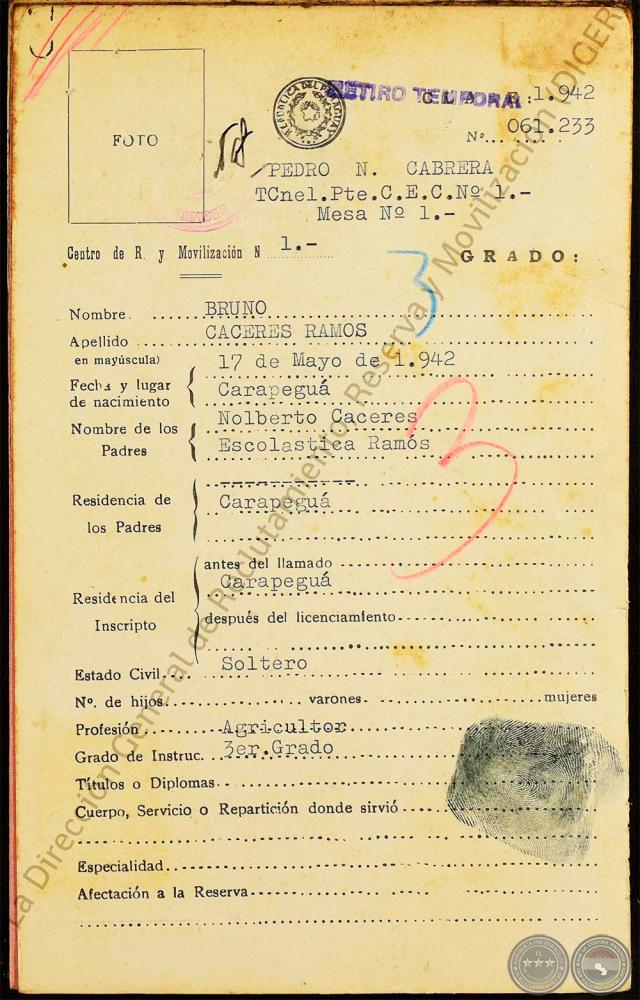 RETIRO TEMPORAL
CLASE: 1.942
Nº. 061.233
FOTO
REPUBLICA DEL PARAGUAY
PEDRO N. CABRERA
TCnel.Pte.C.E.C.Nº 1.-
Mesa Nº 1.-
Centro de R. y Movilización N 1.-
GRADO:
3
Nombre BRUNO
Apellido CACERES RAMOS
en mayúscula)
17 de Mayo de 1.942
Fecha y lugar de nacimiento Carapeguá
Nombre de los Padres Nolberto Caceres
Escolastica Ramós
3
Residencia de los Padres Carapeguá
antes del llamado
Carapeguá
Residencia del Inscripto
después del licenciamiento
Estado Civil Soltero
Nº. de hijos varones mujeres
Profesión Agricultor
Grado de Instruc. 3er.Grado
Títulos o Diplomas
Cuerpo, Servicio o Repartición donde sirvió
Especialidad
Afectación a la Reserva
La Dirección General de Reclutamiento, Reserva y Movilización (DIGER